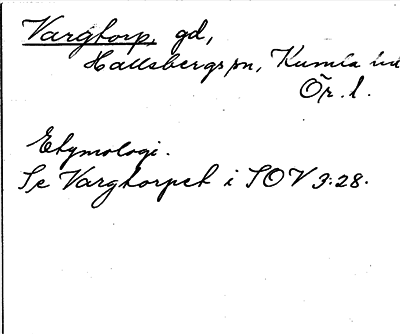 Vargtorp, gd,
Hallsbergs sn, Kumla hd
Ör. l.
Etymologi.
Se Vargtorpet i SOV 3:28.